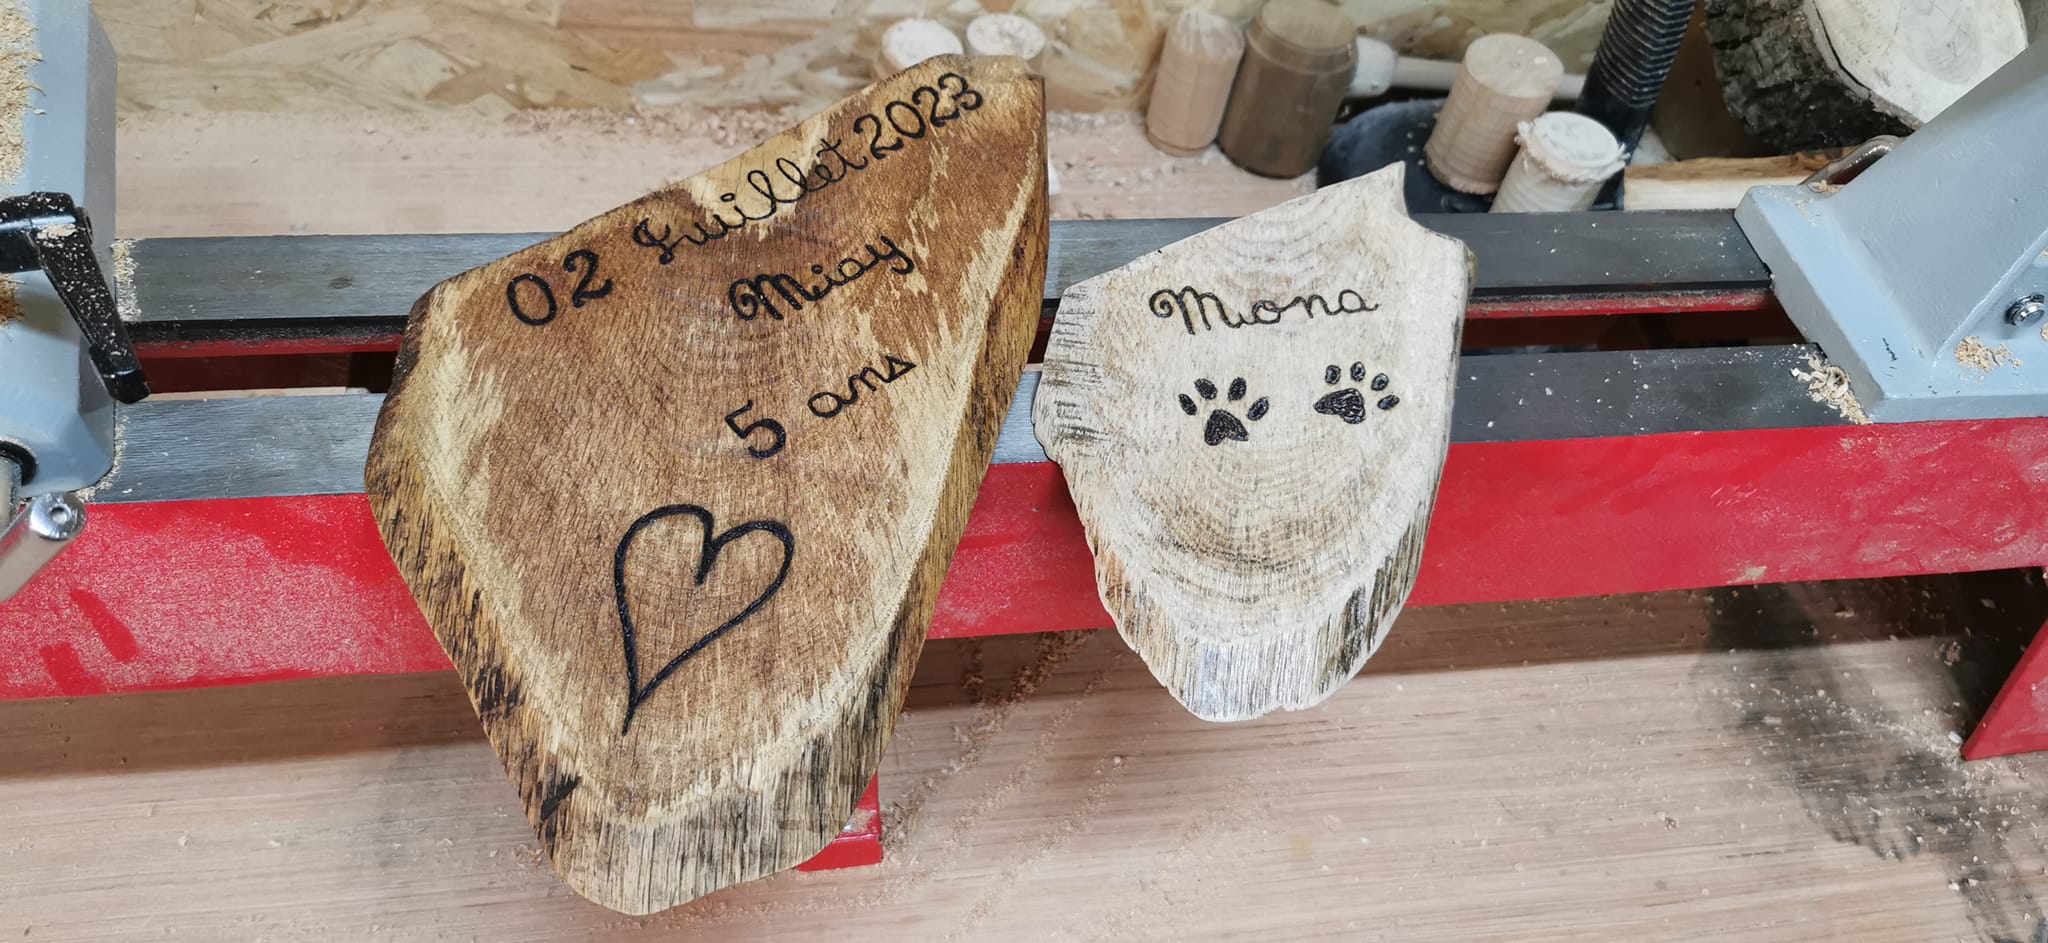 02 Juillet 2023
Miay
5 ans
Mona